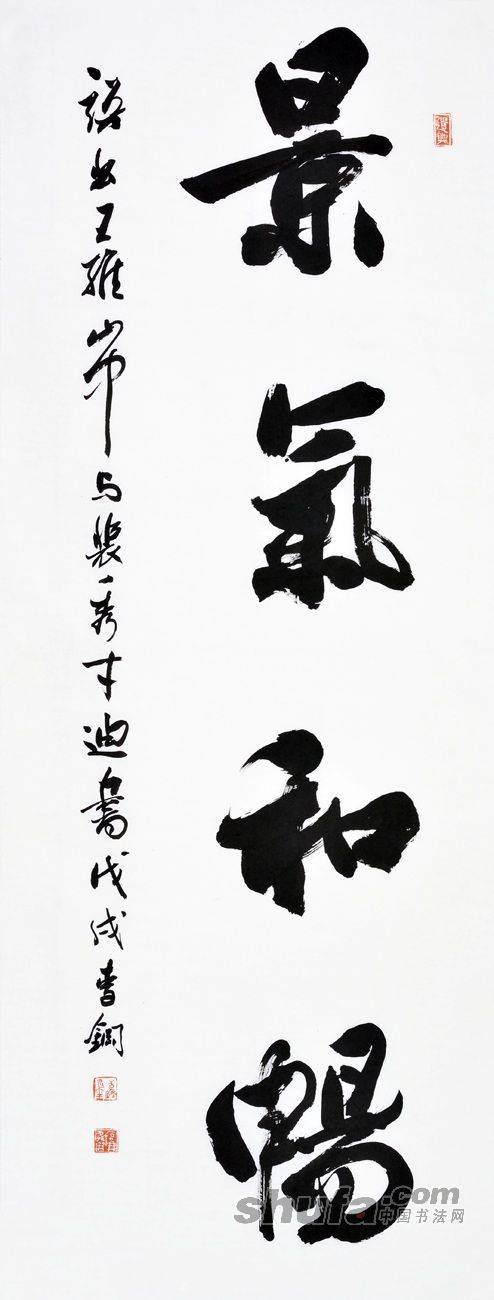 景氣和暢
語出王維山中与裴秀才迪書戊戌書鋼
shufa.com
中国书法网